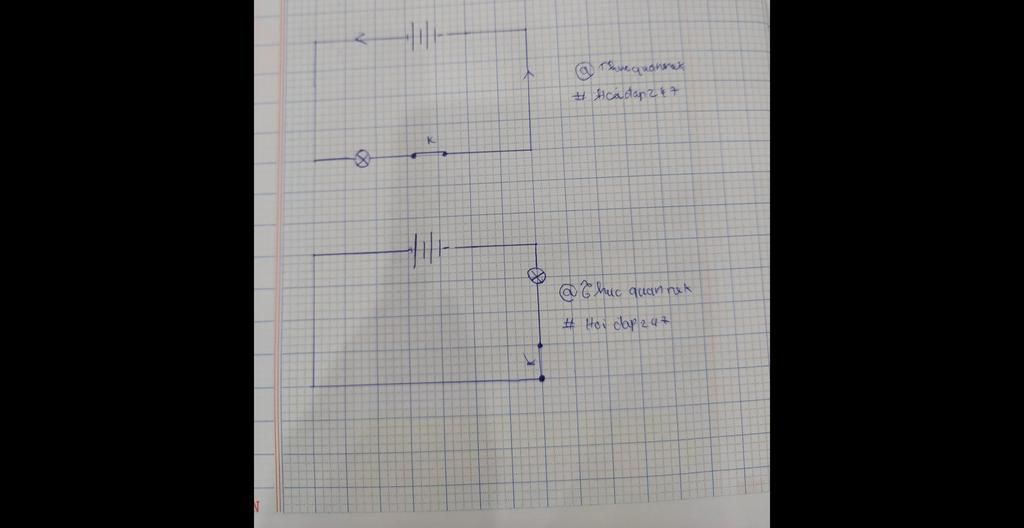 @ Thucquannek
# Hoidap247
K
@ Thuc quannek
# Hoi dap247
K
N